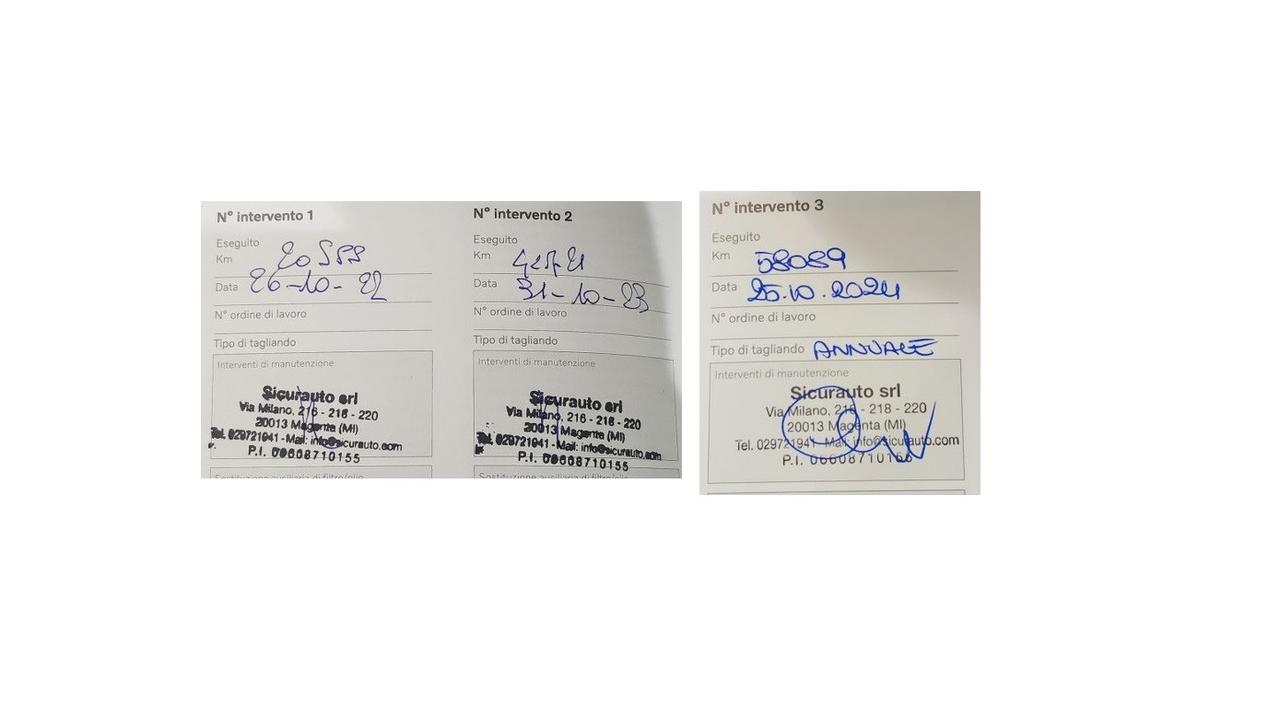 N° intervento 1
Eseguito
Km
Data 26-10-22
N° ordine di lavoro
Tipo di tagliando
Interventi di manutenzione
Sicurauto srl
Via Milano, 216 - 218 - 220
20013 Magenta (MI)
Tel. 029721941 - Mail: info@sicurauto.com
P.I. 06608710155
N° intervento 2
Eseguito
Km
Data 31-10-23
N° ordine di lavoro
Tipo di tagliando
Interventi di manutenzione
Sicurauto srl
Via Milano, 216 - 218 - 220
20013 Magenta (MI)
Tel. 029721941 - Mail: info@sicurauto.com
P.I. 06608710155
Sostituzione ausiliaria di filtro/olio
N° intervento 3
Eseguito
Km 58089
Data 25.10.2024
N° ordine di lavoro
Tipo di tagliando ANNUALE
Interventi di manutenzione
Sicurauto srl
Via Milano, 216 - 218 - 220
20013 Magenta (MI)
Tel. 029721941 - Mail: info@sicurauto.com
P.I. 06608710155